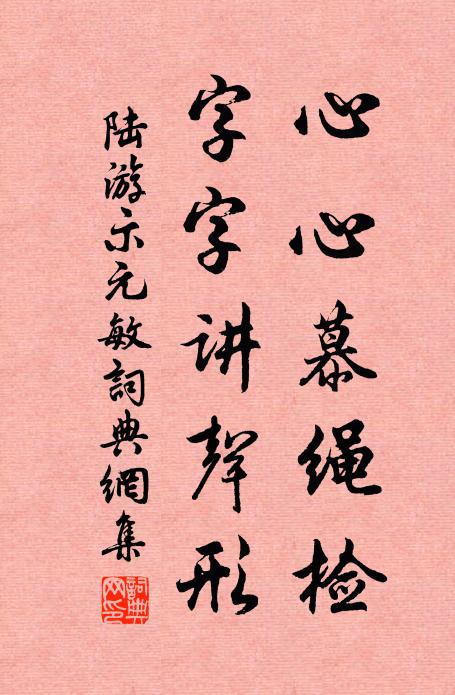 心心慕绳检
字字讲声形
陆游示元敏詞典網集
詞典网印